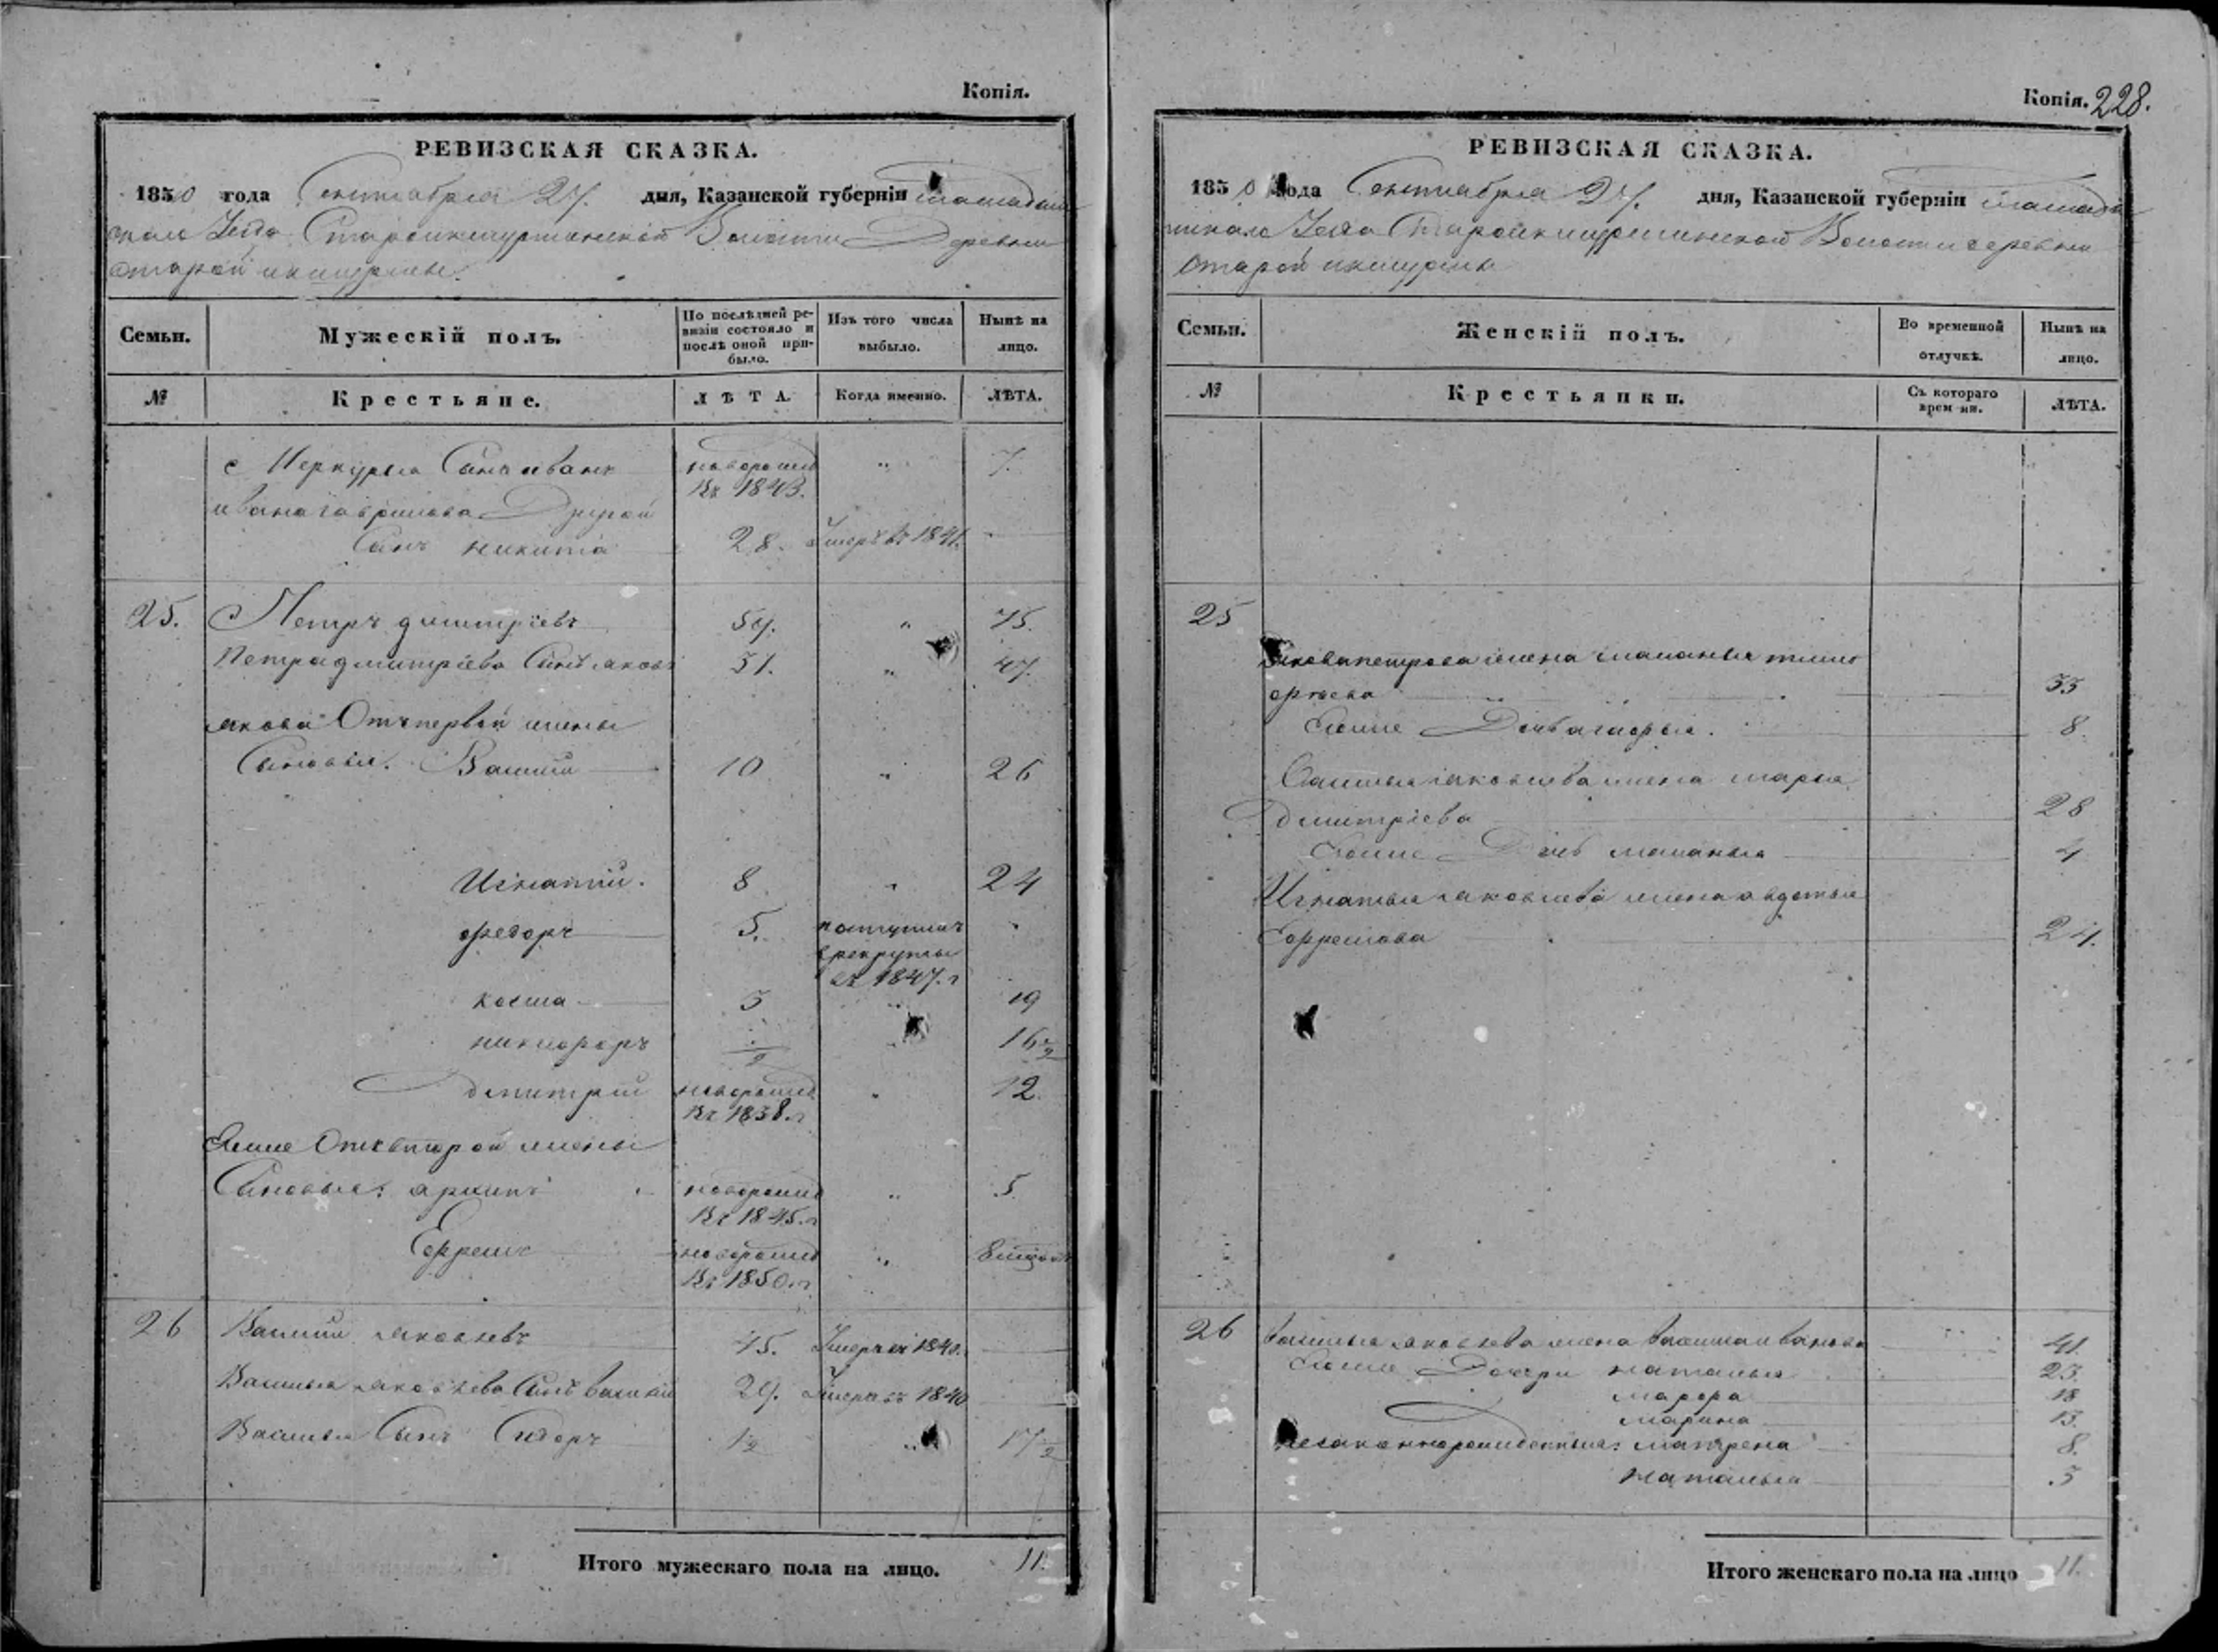 Копія.
РЕВИЗСКАЯ СКАЗКА.
1850 года Сентября 27. дня, Казанской губерніи Мамадыш
скаго Уезда Волости Деревни
Старой
Семьи.
Мужескій полъ.
По послѣдней ре-
визіи состояло и
послѣ оной при-
было.
Изъ того числа
выбыло.
Нынѣ на
лицо.
№
Крестьяне.
ЛѢТА.
Когда именно.
ЛѢТА.
Меркурья Сынъ иванъ новорожд " 7.
въ 1843.
ивана гаврилова Другой
Сынъ никита 28. Умеръ въ 1841.
25. Петръ дмитріевъ 59. " 75.
Петра дмитріева Сынъ яковъ 31. " 47.
якова Отъ первой жены
Сыновья. Василій 10 " 26
Игнатій. 8 " 24
федоръ 5. поступилъ
в рекруты
въ 1847. г
косма 3 " 19
никифоръ 1/2 " 16 1/2
дмитрій новорожд " 12.
въ 1838. г
Ево же Отъ второй жены
Сыновья: архипъ новорожд " 5.
въ 1845. г
Ефремъ новорожд "
въ 1850. г
26 Василій яковлевъ 45. Умеръ въ 1840.
Василья яковлева Сынъ василій 29. Умеръ въ 1840
Василья Сынъ Сидоръ 1/2 " 17 1/2
Итого мужескаго пола на лицо. 11.
Копія. 228.
РЕВИЗСКАЯ СКАЗКА.
1850 года Сентября 27. дня, Казанской губерніи Мамады
шскаго Уезда Волости деревни
Старой
Семьи.
Женскій полъ.
Во временной
отлучкѣ.
Нынѣ на
лицо.
№
Крестьянки.
Съ котораго
врем ни.
ЛѢТА.
25
Якова петрова жена маланья тимо
фѣева 33
Ево же Дочь агафья. 8
Василья яковлева жена марья
дмитріева 28
Ево же Дочь маланья 4
Игнатья яковлева жена авдотья
Ефремова 24.
26 Василья яковлева жена василиса иванова 41
Ево же Дочери наталья 23.
марфа 18
марина 13.
незаконнорожденныя: матрена 8.
наталья 3
Итого женскаго пола на лицо 11.